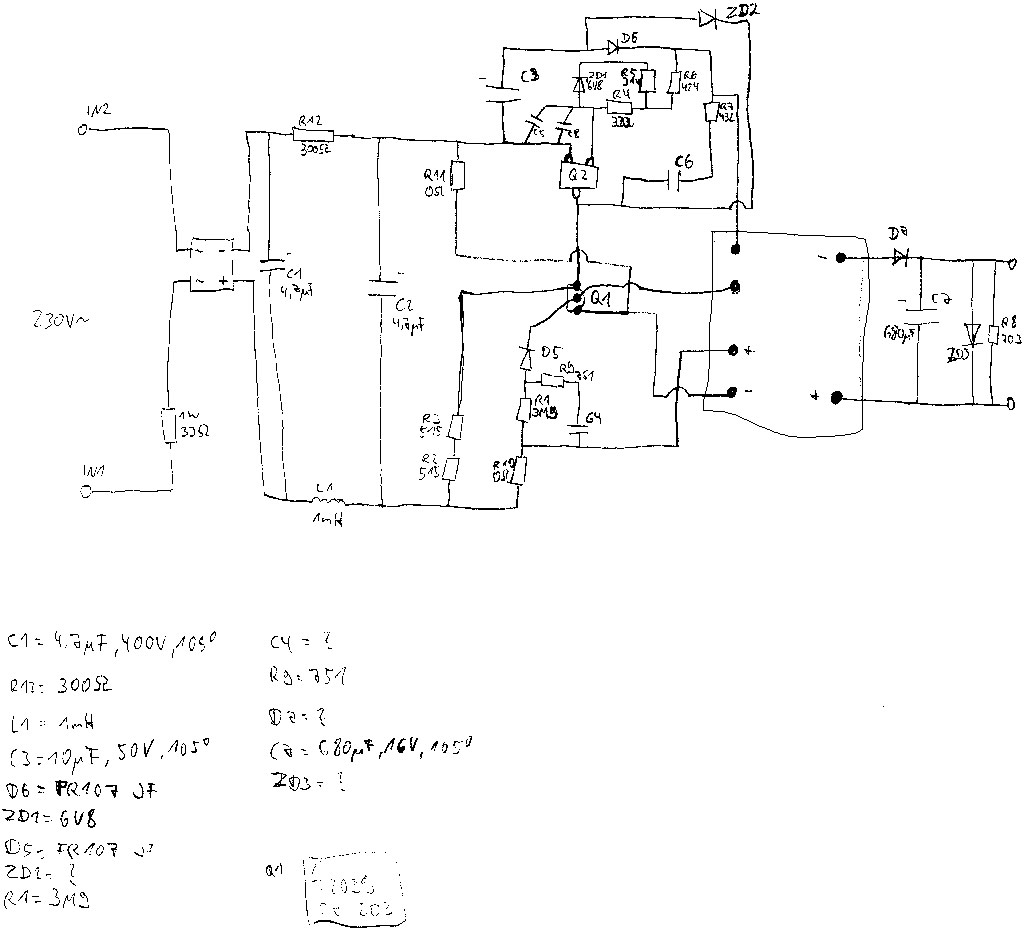 ZD2
D6
C3
ZD1
6V8
R5
R6
R4
R7
IN2
R12
300Ω
C5
C8
Q2
C6
R11
0Ω
C1
4,7µF
C2
4,7µF
Q1
D7
C7
680µF
ZD3
R8
203
230V~
D5
R9
751
R1
3M9
C4
1W
30Ω
R3
515
R2
513
R10
0Ω
IN1
L1
1mH
- ~
~ +
-
+
-
+
C1= 4,7µF, 400V, 105°
R12= 300Ω
L1= 1mH
C3=10µF, 50V, 105°
D6= FR107
ZD1= 6V8
D5= FR107
ZD2= ?
R1= 3M9
C4= ?
R9= 751
D7= ?
C7= 680µF, 16V, 105°
ZD3= ?
Q1
203